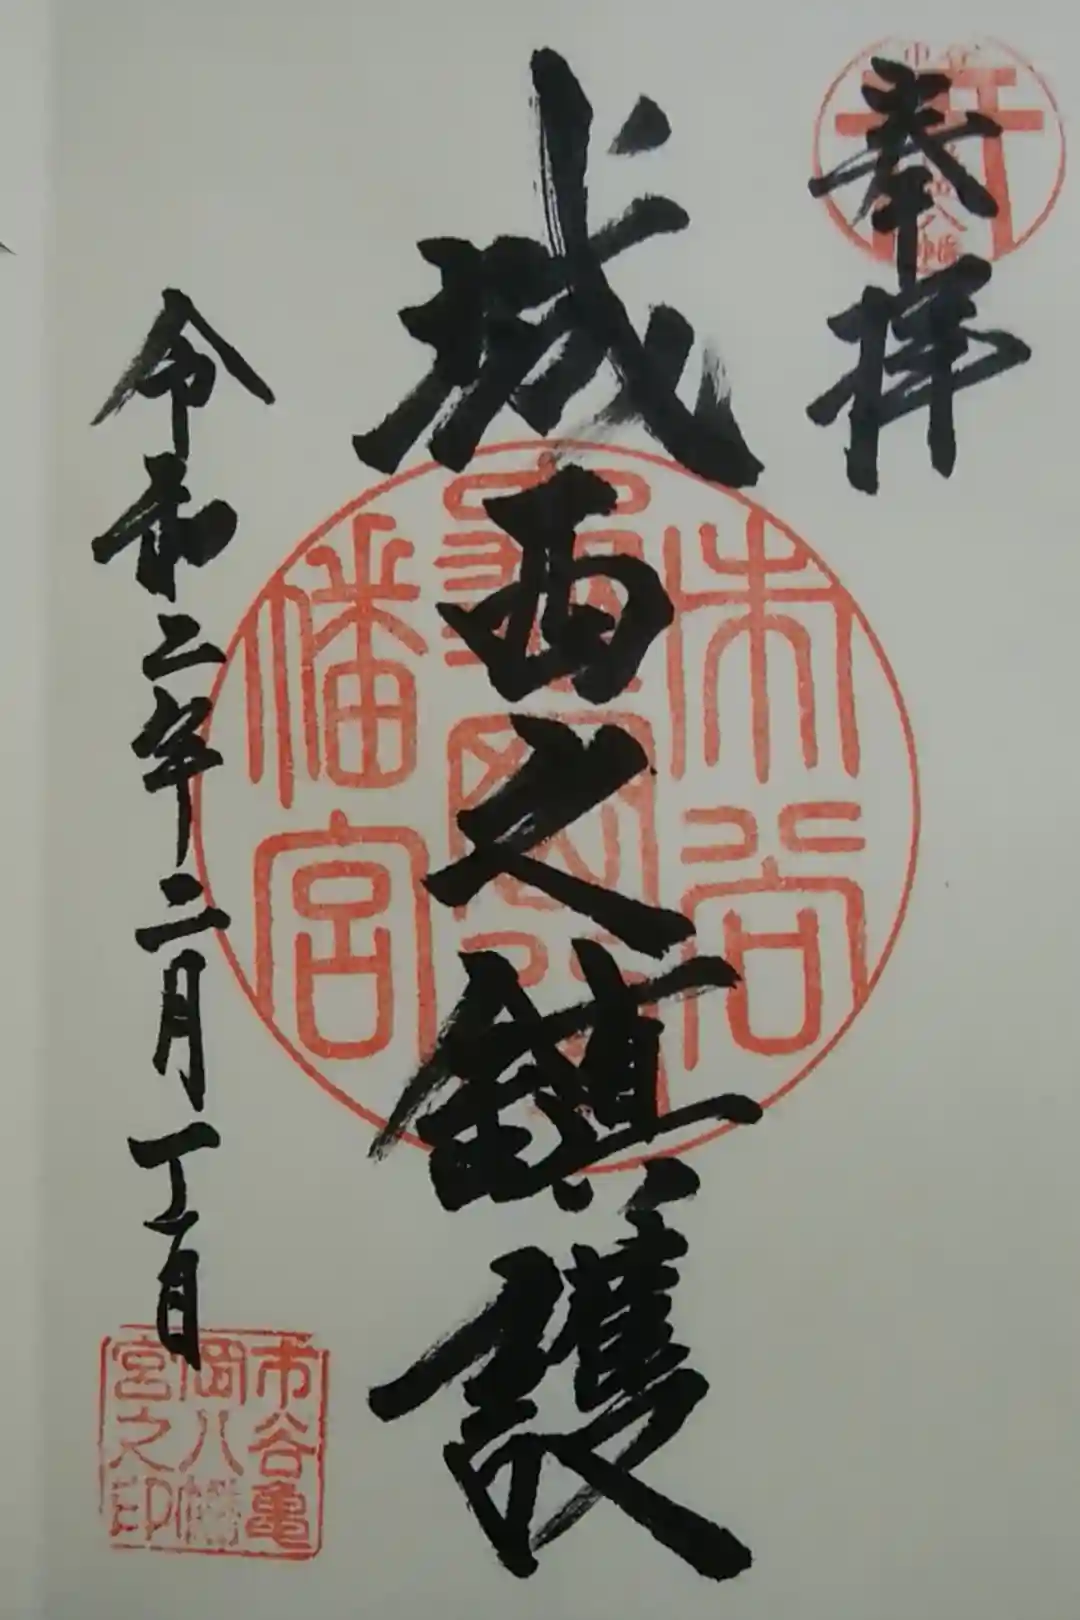 奉拝
城西之鎮護
市谷
亀岡八
幡宮
令和二年二月一日
市谷亀
岡八幡
宮之印